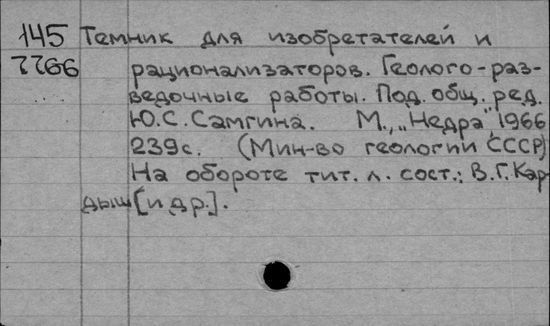 145 Темник для изобретателей и
7766 рационализаторов. Геолого-раз-
ведочные работы. Под. общ. ред.
Ю.С. Самгина. М., „Недра", 1966
239с. (Мин-во геологии СССР)
На обороте тит. л. сост.: В.Г. Кар
дыш [и др.].